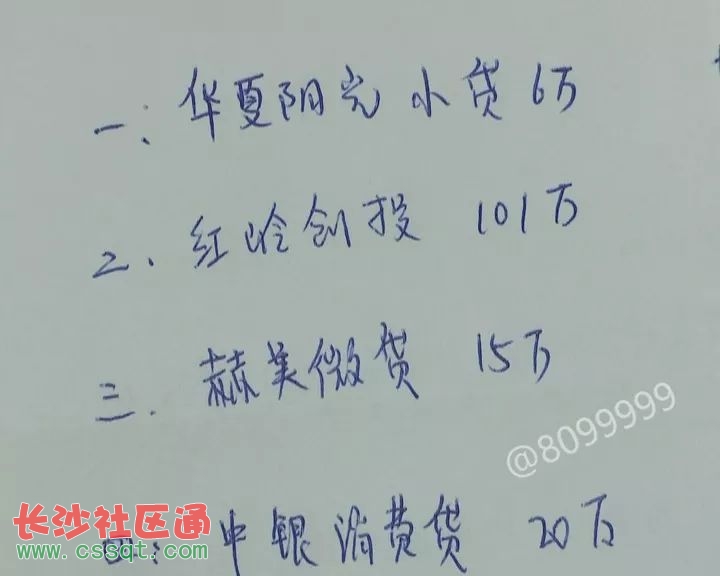 一、华夏阳光小贷 6万
二、红岭创投 101万
三、赫美微贷 15万
@8099999
四、中银消费贷 20万
长沙社区通
www.cssqt.com